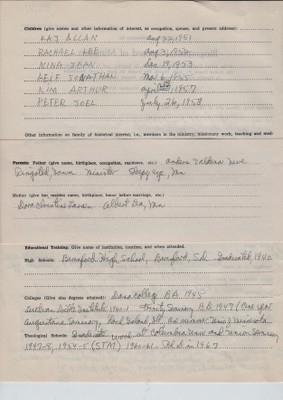 Children (give names and other information of interest, as occupation, spouse, and present address):
KAJ ALLAN Aug 22, 1951
RACHAEL LEE Aug 3, 1952
NINA JEAN Dec 19, 1953
LEIF JONATHAN Nov 6, 1955
KIM ARTHUR April 1957
PETER JOEL July 26, 1958
Other information on family of historical interest, i.e., members in the ministry, missionary work, teaching and
Parents: Father (give name, birthplace, occupation, e.g., etc.) Anders Valdemar
Ringsted, Iowa Minister Sleepy Eye, Mn
Mother (give her maiden name, birthplace, honor before marriage, etc.)
Dora Christine Albert Lea, Mn
Educational Training: Give name of institution, courses, and when attended.
High Schools: Beresford High School, Beresford, S.D. Graduated, 1940
Colleges (Give also degrees attained): Dana College B.A. 1945
Lutheran Bible Institute 1940-1 Trinity Seminary B.D. 1947 (One year
Augustana Seminary, Rock Island, Ill. Minnesota
Theological Schools: Graduate work at Columbia Univ and Union Seminary
1947-8, 1954-5 (STM) 1960-61. Ph.D. in 1967